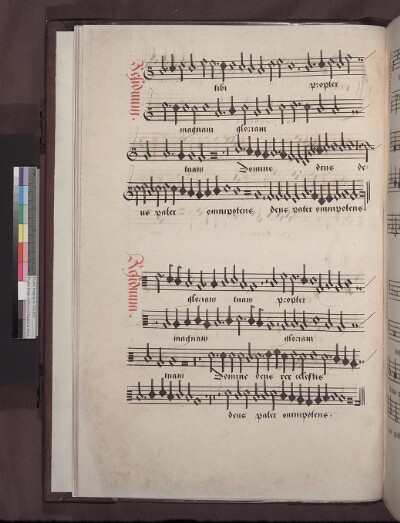 Residuum.
tibi propter
magnam gloriam
tuam Domine deus de
us pater omnipotens deus pater omnipotens
Residuum.
gloriam tuam propter
magnam gloriam
tuam Domine deus rex celestis
deus pater omnipotens.